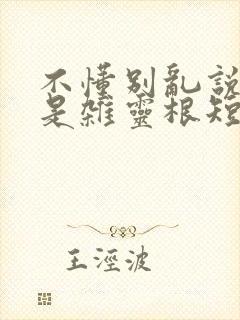 不懂別亂說
是雜靈根短
王涇波